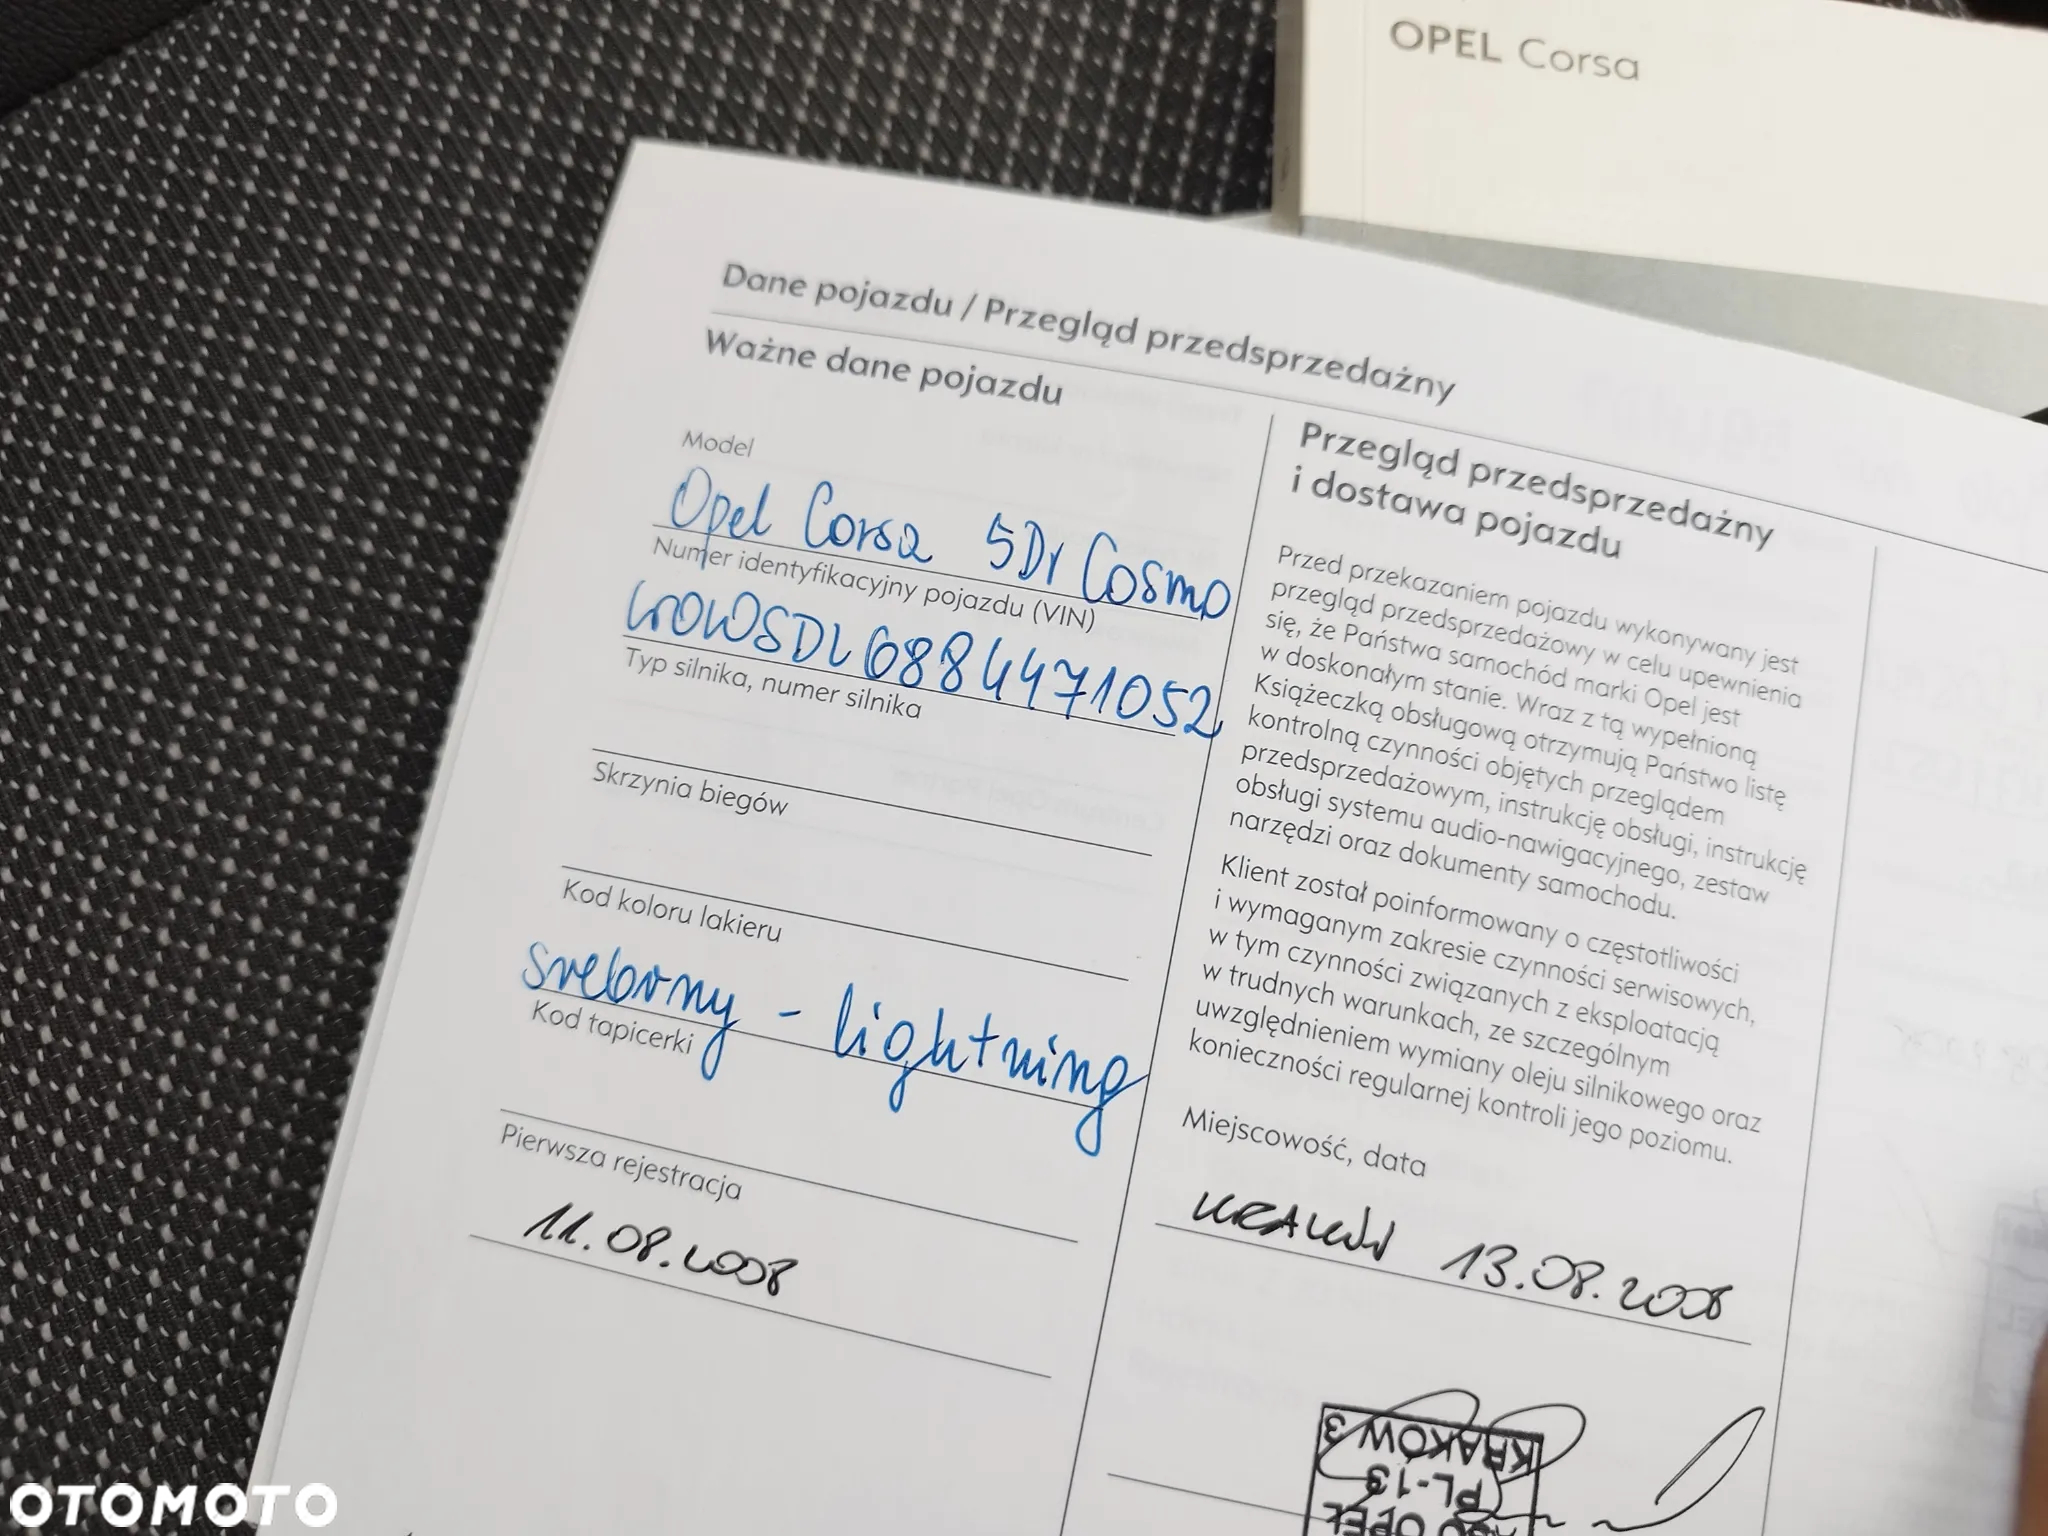 OPEL Corsa
Dane pojazdu / Przegląd przedsprzedażny
Ważne dane pojazdu
Model
Opel Corsa 5Dr Cosmo
Numer identyfikacyjny pojazdu (VIN)
W0L0SDL6884471052
Typ silnika, numer silnika
Skrzynia biegów
Kod koloru lakieru
srebrny - lightning
Kod tapicerki
Pierwsza rejestracja
11.08.2008
Przegląd przedsprzedażny
i dostawa pojazdu
Przed przekazaniem pojazdu wykonywany jest
przegląd przedsprzedażowy w celu upewnienia
się, że Państwa samochód marki Opel jest
w doskonałym stanie. Wraz z tą wypełnioną
Książeczką obsługową otrzymują Państwo listę
kontrolną czynności objętych przeglądem
przedsprzedażowym, instrukcję obsługi, instrukcję
obsługi systemu audio-nawigacyjnego, zestaw
narzędzi oraz dokumenty samochodu.
Klient został poinformowany o częstotliwości
i wymaganym zakresie czynności serwisowych,
w tym czynności związanych z eksploatacją
w trudnych warunkach, ze szczególnym
uwzględnieniem wymiany oleju silnikowego oraz
konieczności regularnej kontroli jego poziomu.
Miejscowość, data
KRAKÓW 13.08.2008
KRAKÓW 3
PL-13
OPEL
OTOMOTO